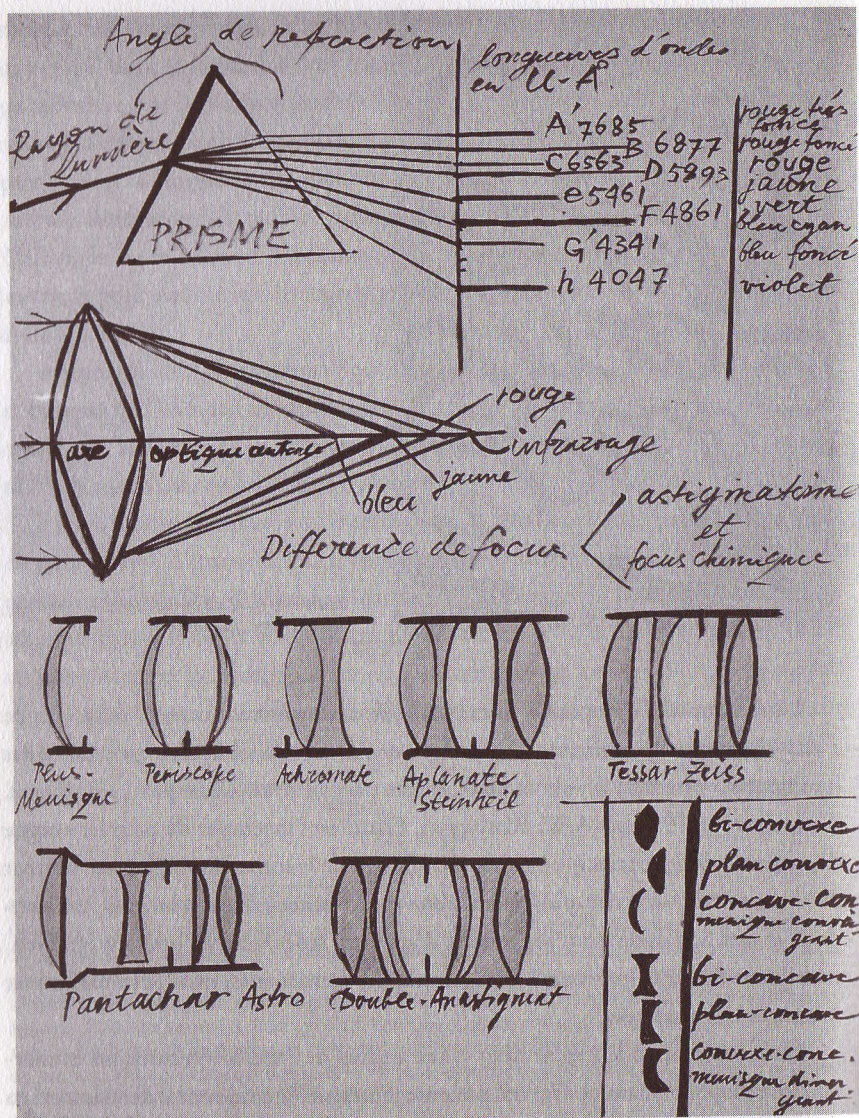 Angle de réfraction
longueurs d'ondes
en U-A°.
Rayon de
lumière
PRISME
A' 7685
B 6877
C 6563
D 5893
e 5461
F 4861
G' 4341
h 4047
rouge très
foncé
rouge foncé
rouge
jaune
vert
bleu cyan
bleu foncé
violet
axe optique
rouge
infrarouge
jaune
bleu
Différence de focus
astigmatisme
et
focus chimique
Plus-
Menisque
Periscope
Achromate
Aplanate
Steinheil
Tessar Zeiss
Pantachar Astro
Double-Anastigmat
bi-convexe
plan convexe
concave-con
menisque conver
geant
bi-concave
plan-concave
convexe-conc.
menisque diver
geant